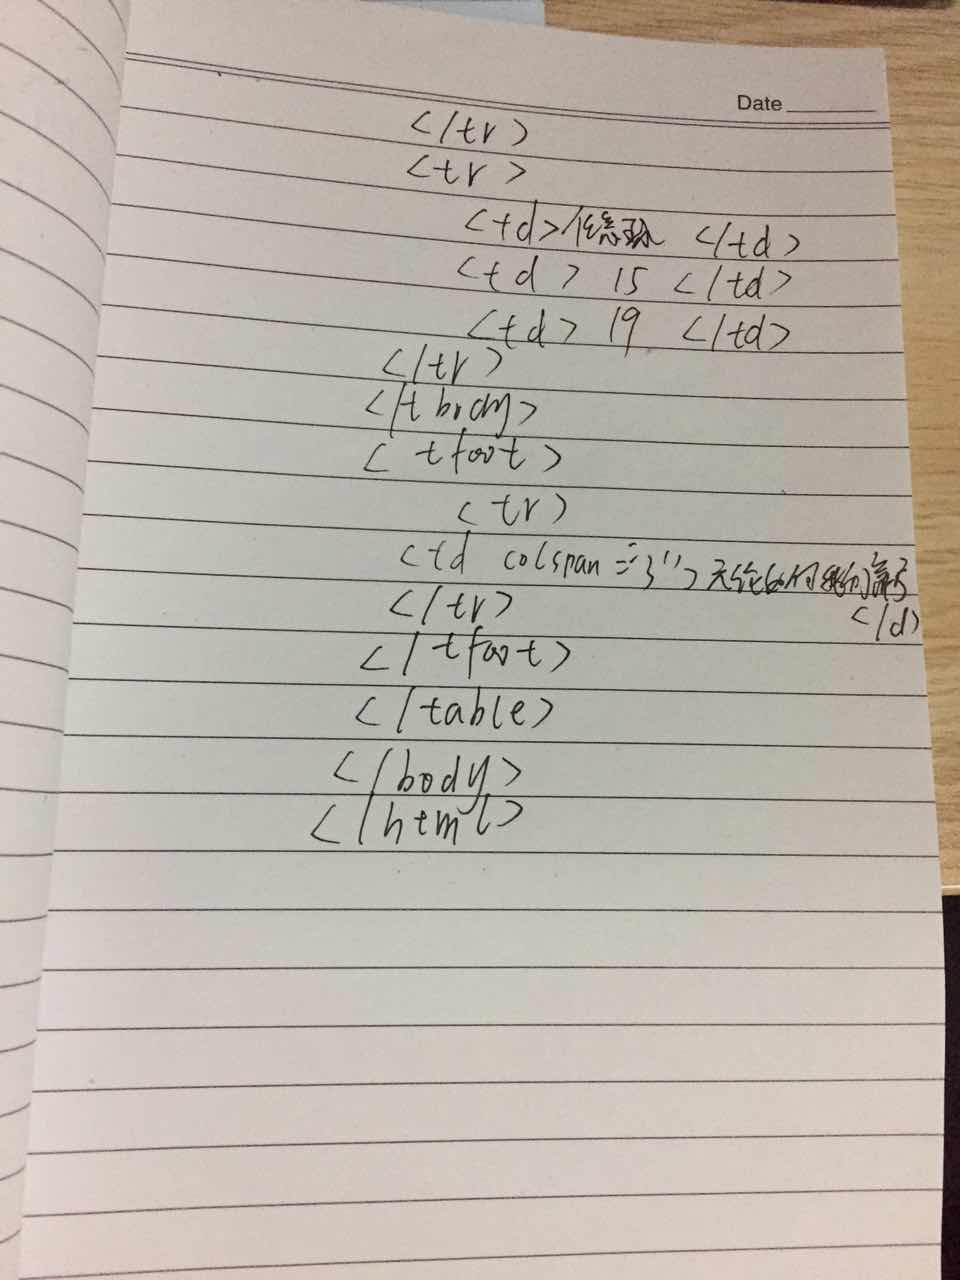 Date
</tr>
<tr>
<td> </td>
<td> 15 </td>
<td> 19 </td>
</tr>
</tbody>
<tfoot>
<tr>
<td colspan="3"> 无论如何我们赢了
</d>
</tr>
</tfoot>
</table>
</body>
</html>